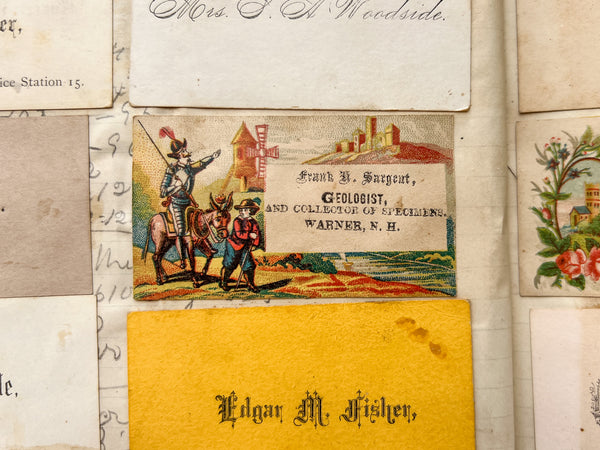 er,
ice Station 15.
Mrs. J. A. Woodside.
Frank H. Sargent,
GEOLOGIST,
AND COLLECTOR OF SPECIMENS.
WARNER, N. H.
le,
Edgar M. Fisher,